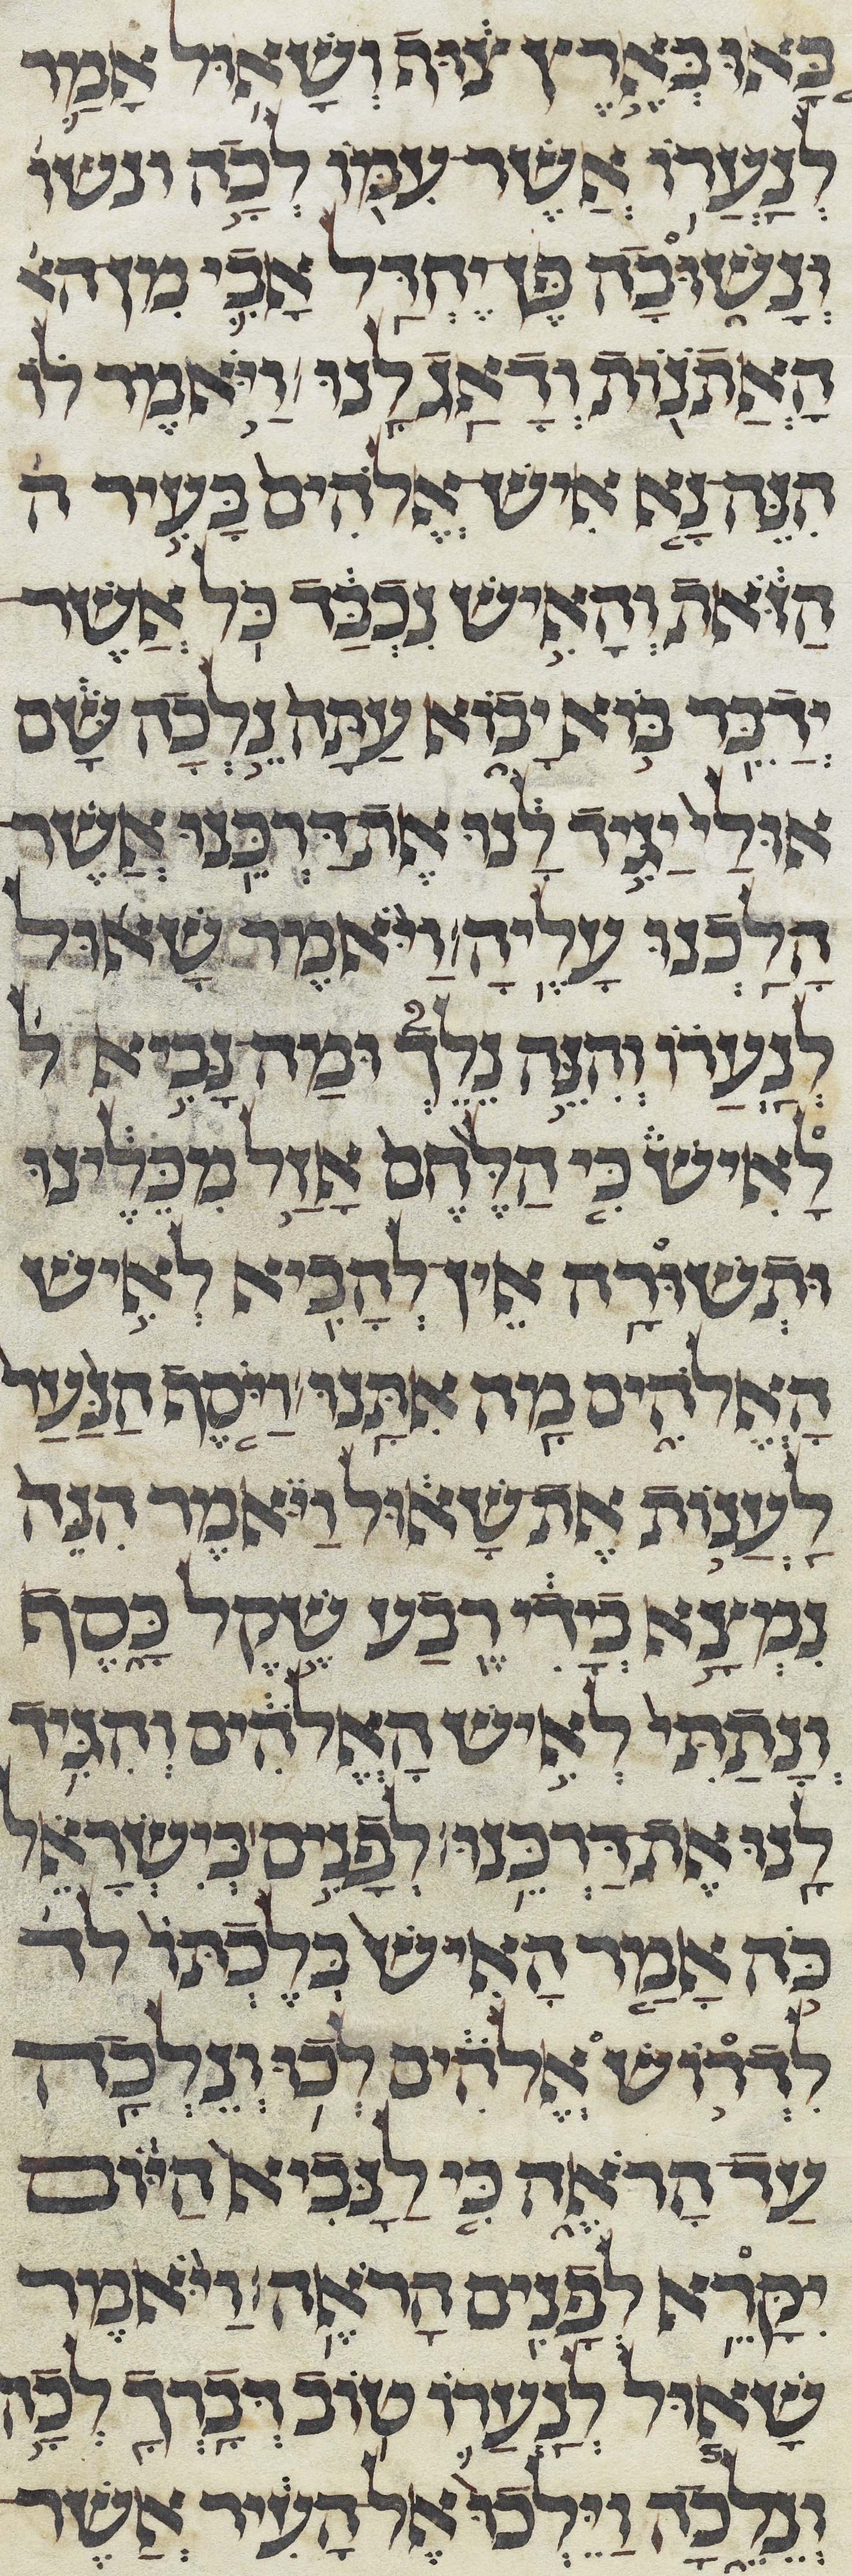 בָּ֚אוּ בְּאֶ֣רֶץ צ֔וּף וְשָׁא֥וּל אָמַ֛ר
לְנַעֲר֥וֹ אֲשֶׁר־עִמּ֖וֹ לְכָ֣ה ונשו
וְנָשׁ֑וּבָה פֶּן־יֶחְדַּ֥ל אָבִ֛י מִן הא
הָאֲתֹנ֖וֹת וְדָ֥אַג לָֽנוּ׃ וַיֹּ֣אמֶר ל֗וֹ
הִנֵּה־נָ֤א אִישׁ־אֱלֹהִים֙ בָּעִ֣יר ה
הַזֹּ֔את וְהָאִ֣ישׁ נִכְבָּ֔ד כֹּ֥ל אֲשֶׁר־
יְדַבֵּ֖ר בּ֣וֹא יָב֑וֹא עַתָּה֙ נֵ֣לְכָה שָּׁ֔ם
אוּלַי֙ יַגִּ֣יד לָ֔נוּ אֶת־דַּרְכֵּ֖נוּ אֲשֶׁר־
הָלַ֥כְנוּ עָלֶֽיהָ׃ וַיֹּ֨אמֶר שָׁא֜וּל
לְנַעֲר֗וֹ וְהִנֵּ֣ה נֵלֵךְ֮ וּמַה־נָּבִ֣יא ל
לָאִישׁ֒ כִּ֤י הַלֶּ֙חֶם֙ אָזַ֣ל מִכֵּלֵ֔ינוּ
וּתְשׁוּרָ֥ה אֵין־לְהָבִ֖יא לְאִ֣ישׁ
הָאֱלֹהִ֑ים מָ֖ה אִתָּֽנוּ׃ וַיֹּ֤סֶף הַנַּ֙עַר֙
לַעֲנ֣וֹת אֶת־שָׁא֔וּל וַיֹּ֕אמֶר הִנֵּה֙
נִמְצָ֣א בְיָדִ֔י רֶ֖בַע שֶׁ֣קֶל כָּ֑סֶף
וְנָֽתַתִּי֙ לְאִ֣ישׁ הָאֱלֹהִ֔ים וְהִגִּ֥יד
לָ֖נוּ אֶת־דַּרְכֵּֽנוּ׃ לְפָנִ֣ים׀ בְּיִשְׂרָאֵ֗ל
כֹּֽה־אָמַ֤ר הָאִישׁ֙ בְּלֶכְתּוֹ֙ לד
לִדְר֣וֹשׁ אֱלֹהִ֔ים לְכ֥וּ וְנֵלְכָ֖ה
עַד־הָרֹאֶ֑ה כִּ֤י לַנָּבִיא֙ הַיּ֔וֹם
יִקָּרֵ֥א לְפָנִ֖ים הָרֹאֶֽה׃ וַיֹּ֨אמֶר
שָׁא֧וּל לְנַעֲר֛וֹ ט֥וֹב דְּבָרְךָ֖ לְכָ֣ה׀
וְנֵלֵ֑כָה וַיֵּֽלְכוּ֙ אֶל־הָעִ֔יר אֲשֶׁר־